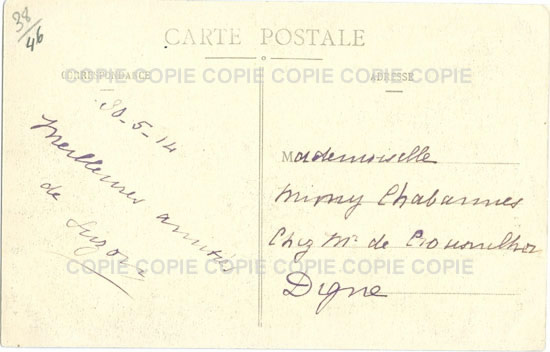 38/46
CARTE POSTALE
COPIE COPIE COPIE COPIE COPIE COPIE
CORRESPONDANCE
ADRESSE
30-5-14
Meilleures amitiés
de Suzon
Mademoiselle
Chabannes
Chez Mr de
Digne
COPIE COPIE COPIE COPIE COPIE COPIE